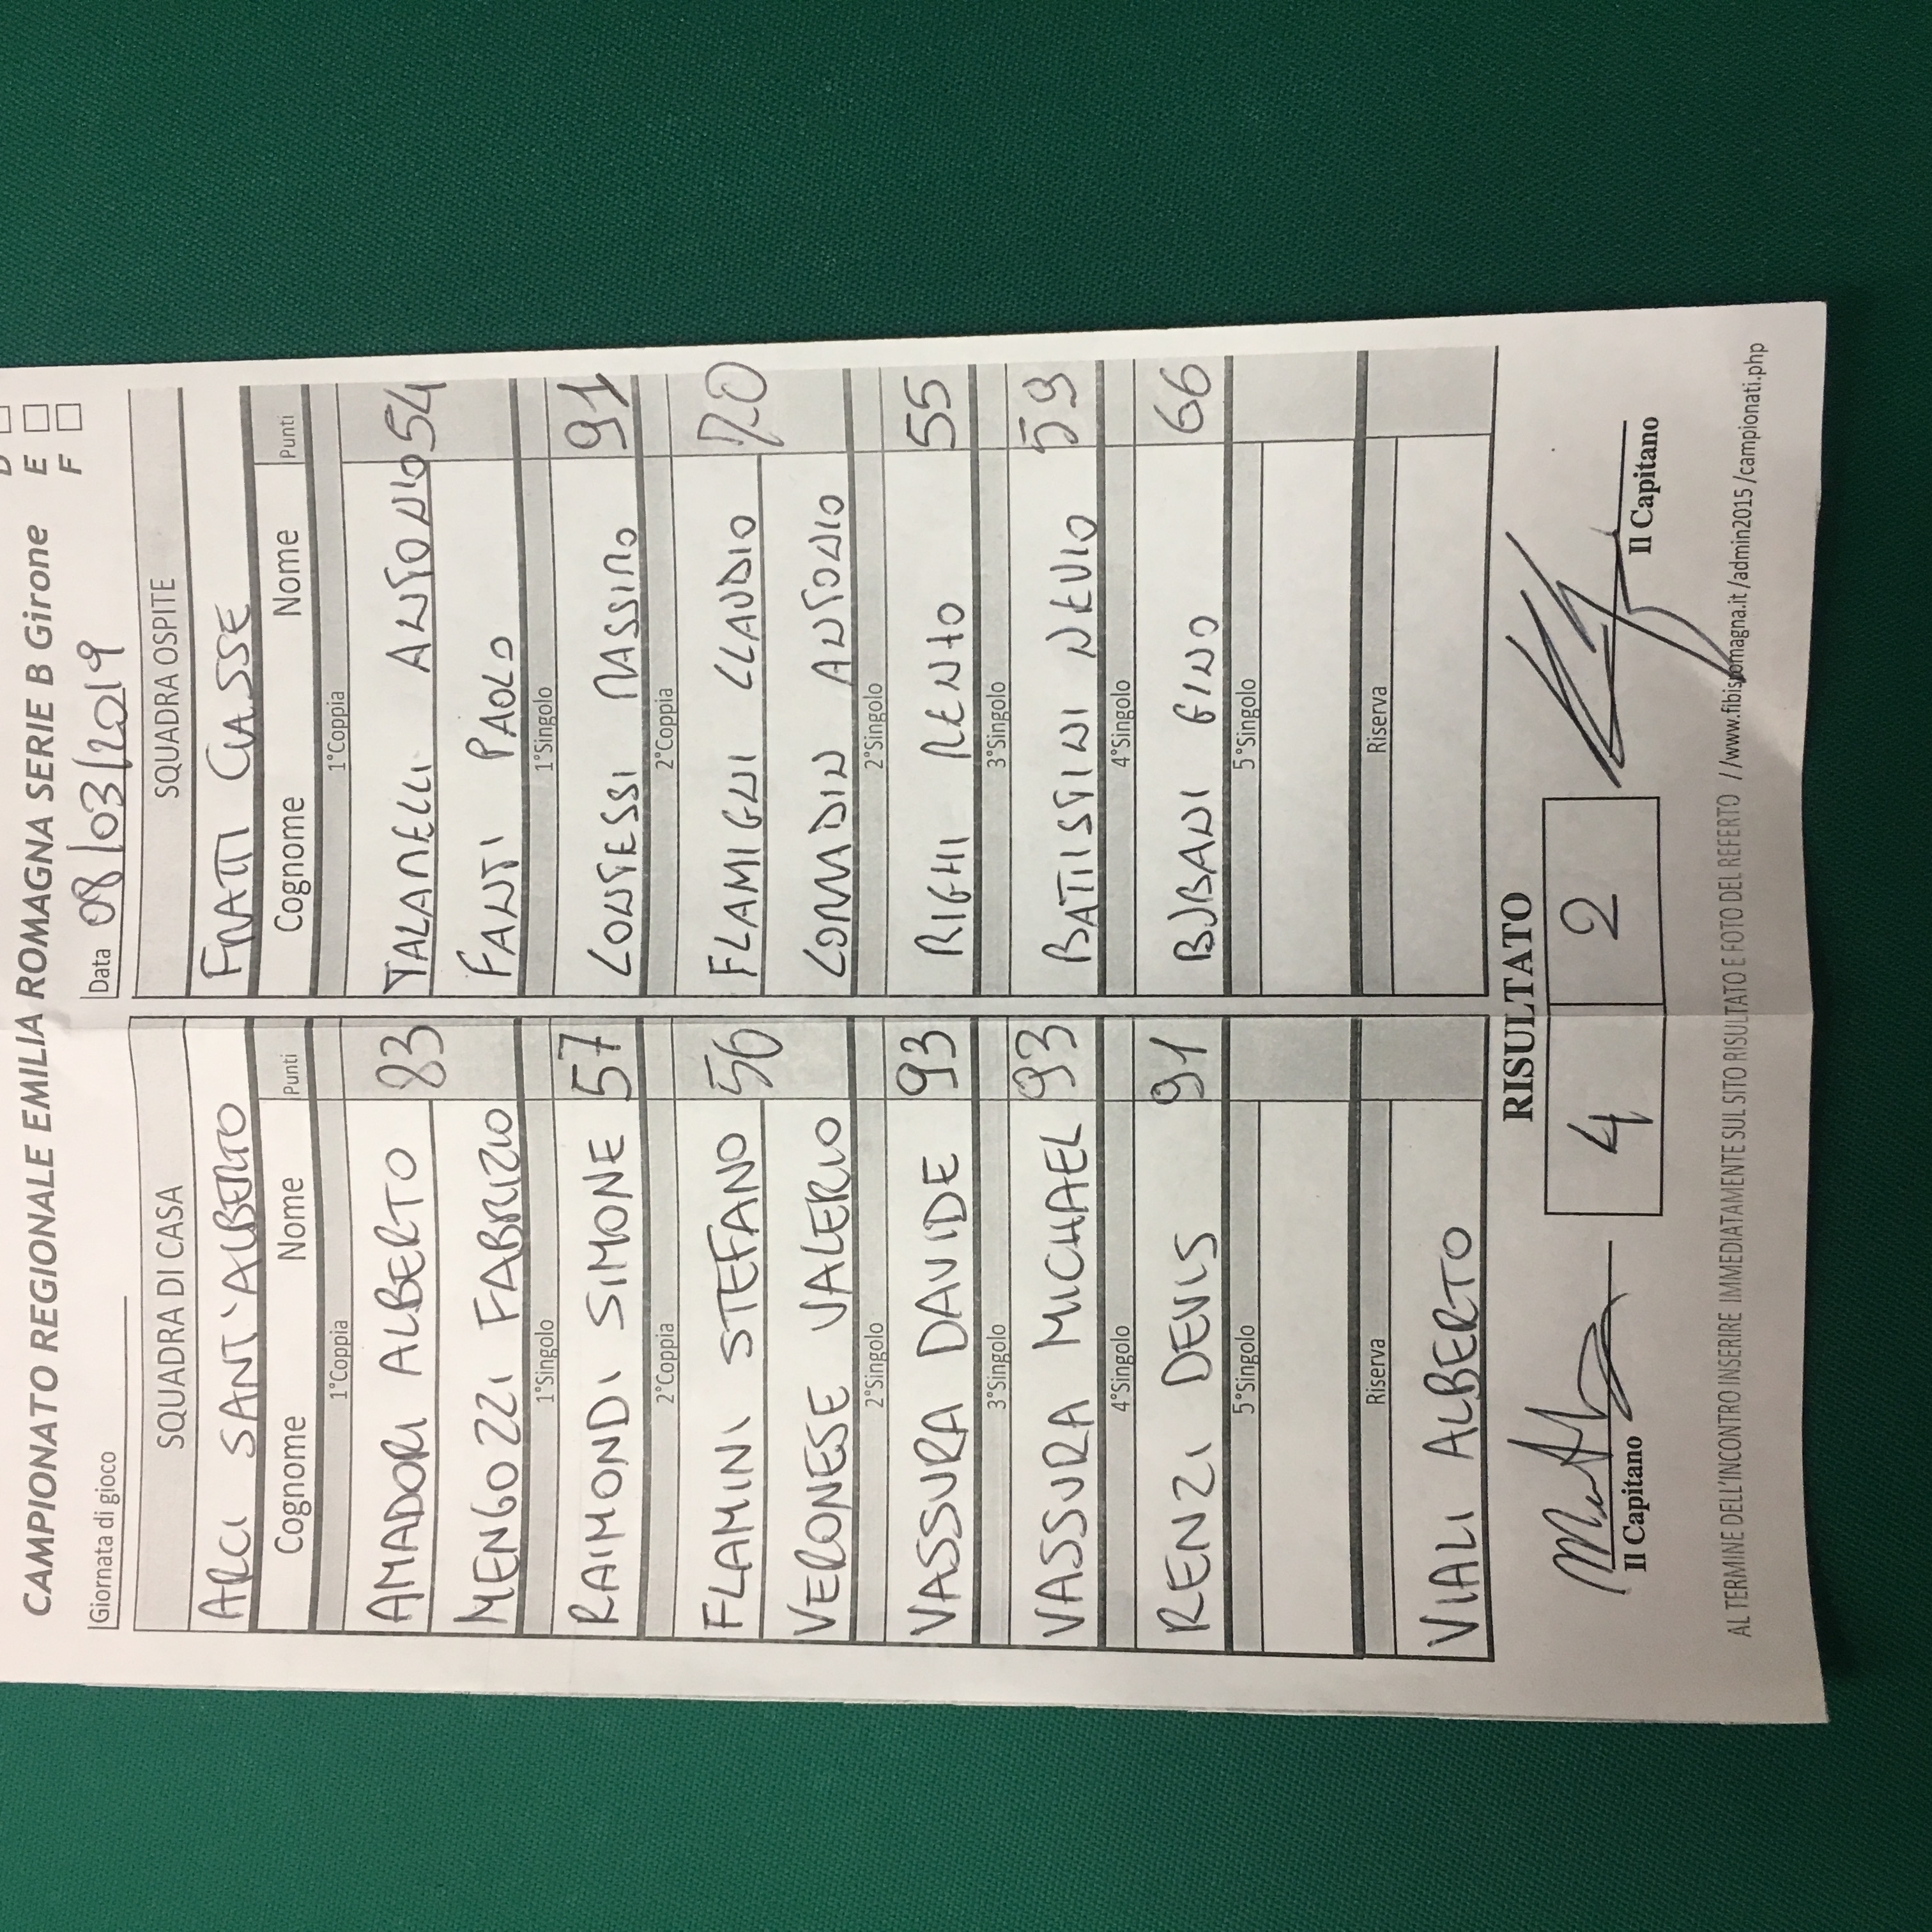 CAMPIONATO REGIONALE EMILIA ROMAGNA SERIE B Girone E
F
Giornata di gioco Data 08/03/2019
SQUADRA DI CASA SQUADRA OSPITE
ARCI SANT'ALBERTO FRATTI CLASSE
Cognome Nome Punti Cognome Nome Punti
1°Coppia 1°Coppia
AMADORI ALBERTO 83 TALAMELLI ANTONIO 54
MENGOZZI FABRIZIO FANTI PAOLO
1°Singolo 1°Singolo
RAIMONDI SIMONE 57 CONTESSI MASSIMO 91
2°Coppia 2°Coppia
FLAMINI STEFANO 56 FLAMIGNI CLAUDIO 70
VERONESE VALERIO CORRADIN ANTONIO
2°Singolo 2°Singolo
VASSURA DAVIDE 93 RIGHI 55
3°Singolo 3°Singolo
VASSURA MICHAEL 93 BATTISTINI NEVIO 59
4°Singolo 4°Singolo
RENZI DEVIS 91 BUBANI GINO 66
5°Singolo 5°Singolo
Riserva Riserva
VIALI ALBERTO
RISULTATO
4 2
Il Capitano Il Capitano
AL TERMINE DELL'INCONTRO INSERIRE IMMEDIATAMENTE SUL SITO RISULTATO E FOTO DEL REFERTO //www.fibisromagna.it/admin2015/campionati.php